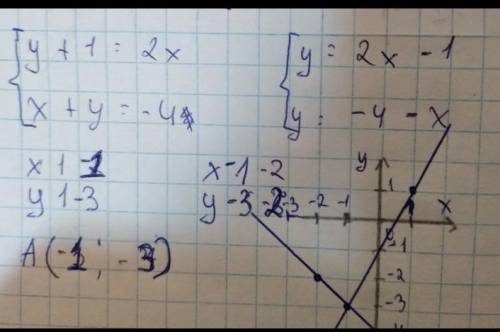 y + 1 = 2x
x + y = -4
y = 2x - 1
y = -4 - x
x 1 -1
y 1 -3
x -1 -2
y -3 -2
A(-1; -3)
y
1
-3 -2 -1
1
x
-1
-2
-3